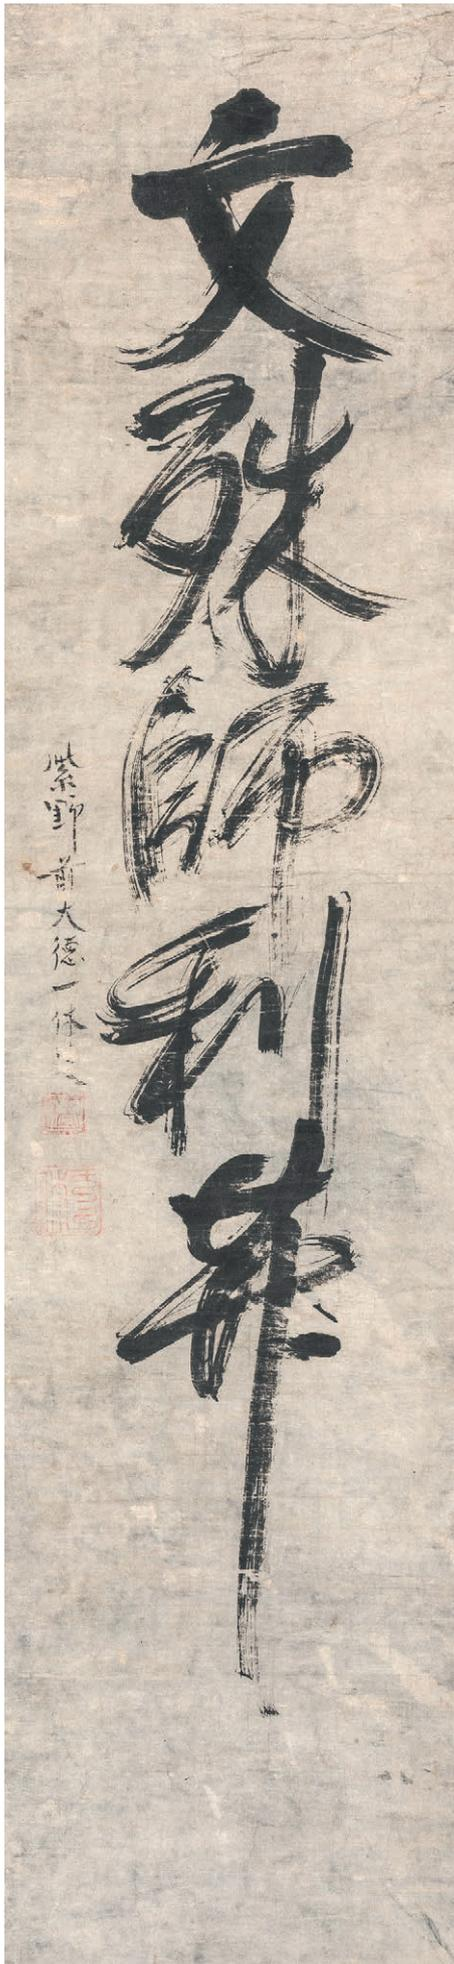 文殊師利
紫野前大徳一休